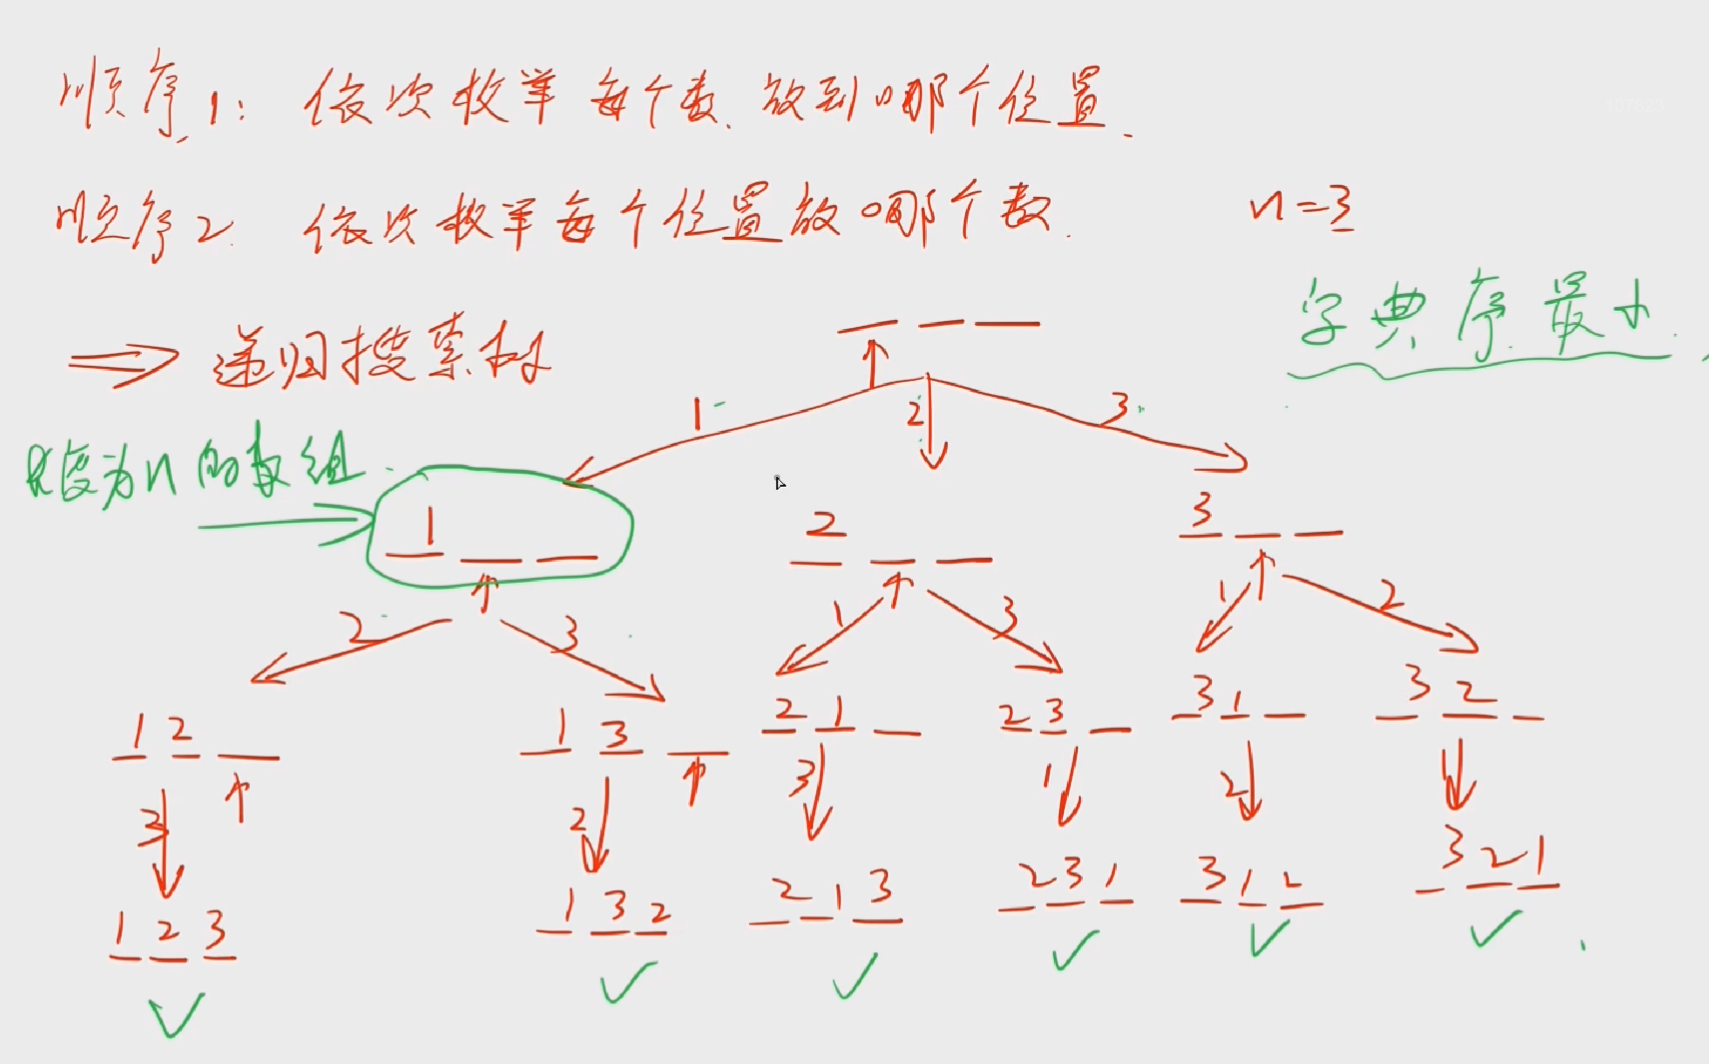 顺序1: 依次枚举每个数放到哪个位置.
顺序2 依次枚举每个位置放哪个数.
n=3
字典序最小
⇒ 递归搜索树
长度为n的数组
1 2 3
1
2
3
2 3
1 3
1 2
1 2
1 3
2 1
2 3
3 1
3 2
3
2
3
1
2
1
1 2 3
1 3 2
2 1 3
2 3 1
3 1 2
3 2 1